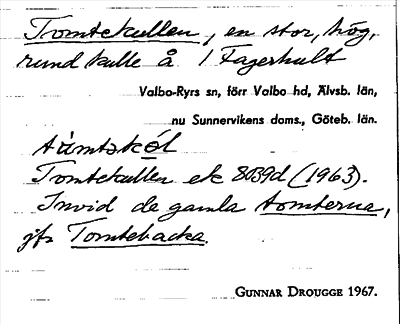 Tomtekullen, en stor, hög,
rund kulle å 1 Fagerhult
Valbo-Ryrs sn, förr Valbo hd, Älvsb. län,
nu Sunnervikens doms., Göteb. län.
tùmtskól
Tomtekullen ek 8039d (1963).
Invid de gamla tomterna,
jfr Tomtebacka.
GUNNAR DROUGGE 1967.